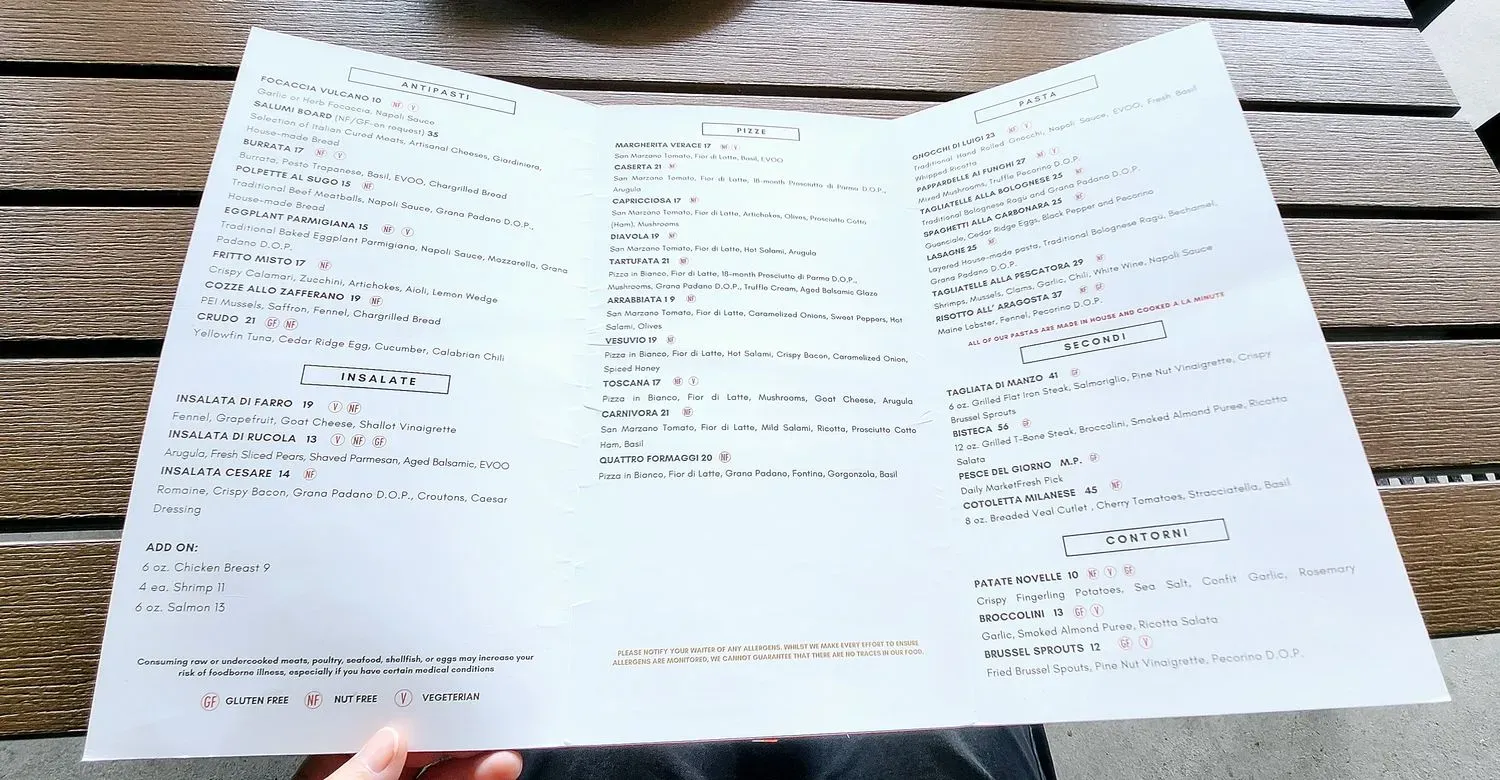 ANTIPASTI
FOCACCIA VULCANO 10 NF V
Garlic or Herb Focaccia, Napoli Sauce
SALUMI BOARD (NF/GF-on request) 35
Selection of Italian Cured Meats, Artisanal Cheeses, Giardiniera,
House-made Bread
BURRATA 17 NF V
Burrata, Pesto Trapanese, Basil, EVOO, Chargrilled Bread
POLPETTE AL SUGO 15 NF
Traditional Beef Meatballs, Napoli Sauce, Grana Padano D.O.P.,
House-made Bread
EGGPLANT PARMIGIANA 15 NF V
Traditional Baked Eggplant Parmigiana, Napoli Sauce, Mozzarella, Grana
Padano D.O.P.
FRITTO MISTO 17 NF
Crispy Calamari, Zucchini, Artichokes, Aioli, Lemon Wedge
COZZE ALLO ZAFFERANO 19 NF
PEI Mussels, Saffron, Fennel, Chargrilled Bread
CRUDO 21 GF NF
Yellowfin Tuna, Cedar Ridge Egg, Cucumber, Calabrian Chili
INSALATE
INSALATA DI FARRO 19 V NF
Fennel, Grapefruit, Goat Cheese, Shallot Vinaigrette
INSALATA DI RUCOLA 13 V NF GF
Arugula, Fresh Sliced Pears, Shaved Parmesan, Aged Balsamic, EVOO
INSALATA CESARE 14 NF
Romaine, Crispy Bacon, Grana Padano D.O.P., Croutons, Caesar
Dressing
ADD ON:
6 oz. Chicken Breast 9
4 ea. Shrimp 11
6 oz. Salmon 13
Consuming raw or undercooked meats, poultry, seafood, shellfish, or eggs may increase your
risk of foodborne illness, especially if you have certain medical conditions
GF GLUTEN FREE NF NUT FREE V VEGETERIAN
PIZZE
MARGHERITA VERACE 17 NF V
San Marzano Tomato, Fior di Latte, Basil, EVOO
CASERTA 21 NF
San Marzano Tomato, Fior di Latte, 18-month Prosciutto di Parma D.O.P.,
Arugula
CAPRICCIOSA 17 NF
San Marzano Tomato, Fior di Latte, Artichokes, Olives, Prosciutto Cotto
(Ham), Mushrooms
DIAVOLA 19 NF
San Marzano Tomato, Fior di Latte, Hot Salami, Arugula
TARTUFATA 21 NF
Pizza in Bianco, Fior di Latte, 18-month Prosciutto di Parma D.O.P.,
Mushrooms, Grana Padano D.O.P., Truffle Cream, Aged Balsamic Glaze
ARRABBIATA 1 9 NF
San Marzano Tomato, Fior di Latte, Caramelized Onions, Sweet Peppers, Hot
Salami, Olives
VESUVIO 19 NF
Pizza in Bianco, Fior di Latte, Hot Salami, Crispy Bacon, Caramelized Onion,
Spiced Honey
TOSCANA 17 NF V
Pizza in Bianco, Fior di Latte, Mushrooms, Goat Cheese, Arugula
CARNIVORA 21 NF
San Marzano Tomato, Fior di Latte, Mild Salami, Ricotta, Prosciutto Cotto
Ham, Basil
QUATTRO FORMAGGI 20 NF
Pizza in Bianco, Fior di Latte, Grana Padano, Fontina, Gorgonzola, Basil
PLEASE NOTIFY YOUR WAITER OF ANY ALLERGENS. WHILST WE MAKE EVERY EFFORT TO ENSURE
ALLERGENS ARE MONITORED, WE CANNOT GUARANTEE THAT THERE ARE NO TRACES IN OUR FOOD.
PASTA
GNOCCHI DI LUIGI 23 NF V
Traditional Hand Rolled Gnocchi, Napoli Sauce, EVOO, Fresh Basil
Whipped Ricotta
PAPPARDELLE AI FUNGHI 27 NF V
Mixed Mushrooms, Truffle Pecorino D.O.P.
TAGLIATELLE ALLA BOLOGNESE 25 NF
Traditional Bolognese Ragú and Grana Padano D.O.P.
SPAGHETTI ALLA CARBONARA 25 NF
Guanciale, Cedar Ridge Eggs, Black Pepper and Pecorino
LASAGNE 25 NF
Layered House-made pasta, Traditional Bolognese Ragú, Bechamel,
Grana Padano D.O.P.
TAGLIATELLE ALLA PESCATORA 29 NF
Shrimps, Mussels, Clams, Garlic, Chili, White Wine, Napoli Sauce
RISOTTO ALL' ARAGOSTA 37 NF GF
Maine Lobster, Fennel, Pecorino D.O.P.
ALL OF OUR PASTAS ARE MADE IN HOUSE AND COOKED A LA MINUTE
SECONDI
TAGLIATA DI MANZO 41 GF
6 oz. Grilled Flat Iron Steak, Salmoriglio, Pine Nut Vinaigrette, Crispy
Brussel Sprouts
BISTECA 56 GF
12 oz. Grilled T-Bone Steak, Broccolini, Smoked Almond Puree, Ricotta
Salata
PESCE DEL GIORNO M.P. GF
Daily MarketFresh Pick
COTOLETTA MILANESE 45 NF
8 oz. Breaded Veal Cutlet , Cherry Tomatoes, Stracciatella, Basil
CONTORNI
PATATE NOVELLE 10 NF V GF
Crispy Fingerling Potatoes, Sea Salt, Confit Garlic, Rosemary
BROCCOLINI 13 GF V
Garlic, Smoked Almond Puree, Ricotta Salata
BRUSSEL SPROUTS 12 GF V
Fried Brussel Spouts, Pine Nut Vinaigrette, Pecorino D.O.P.